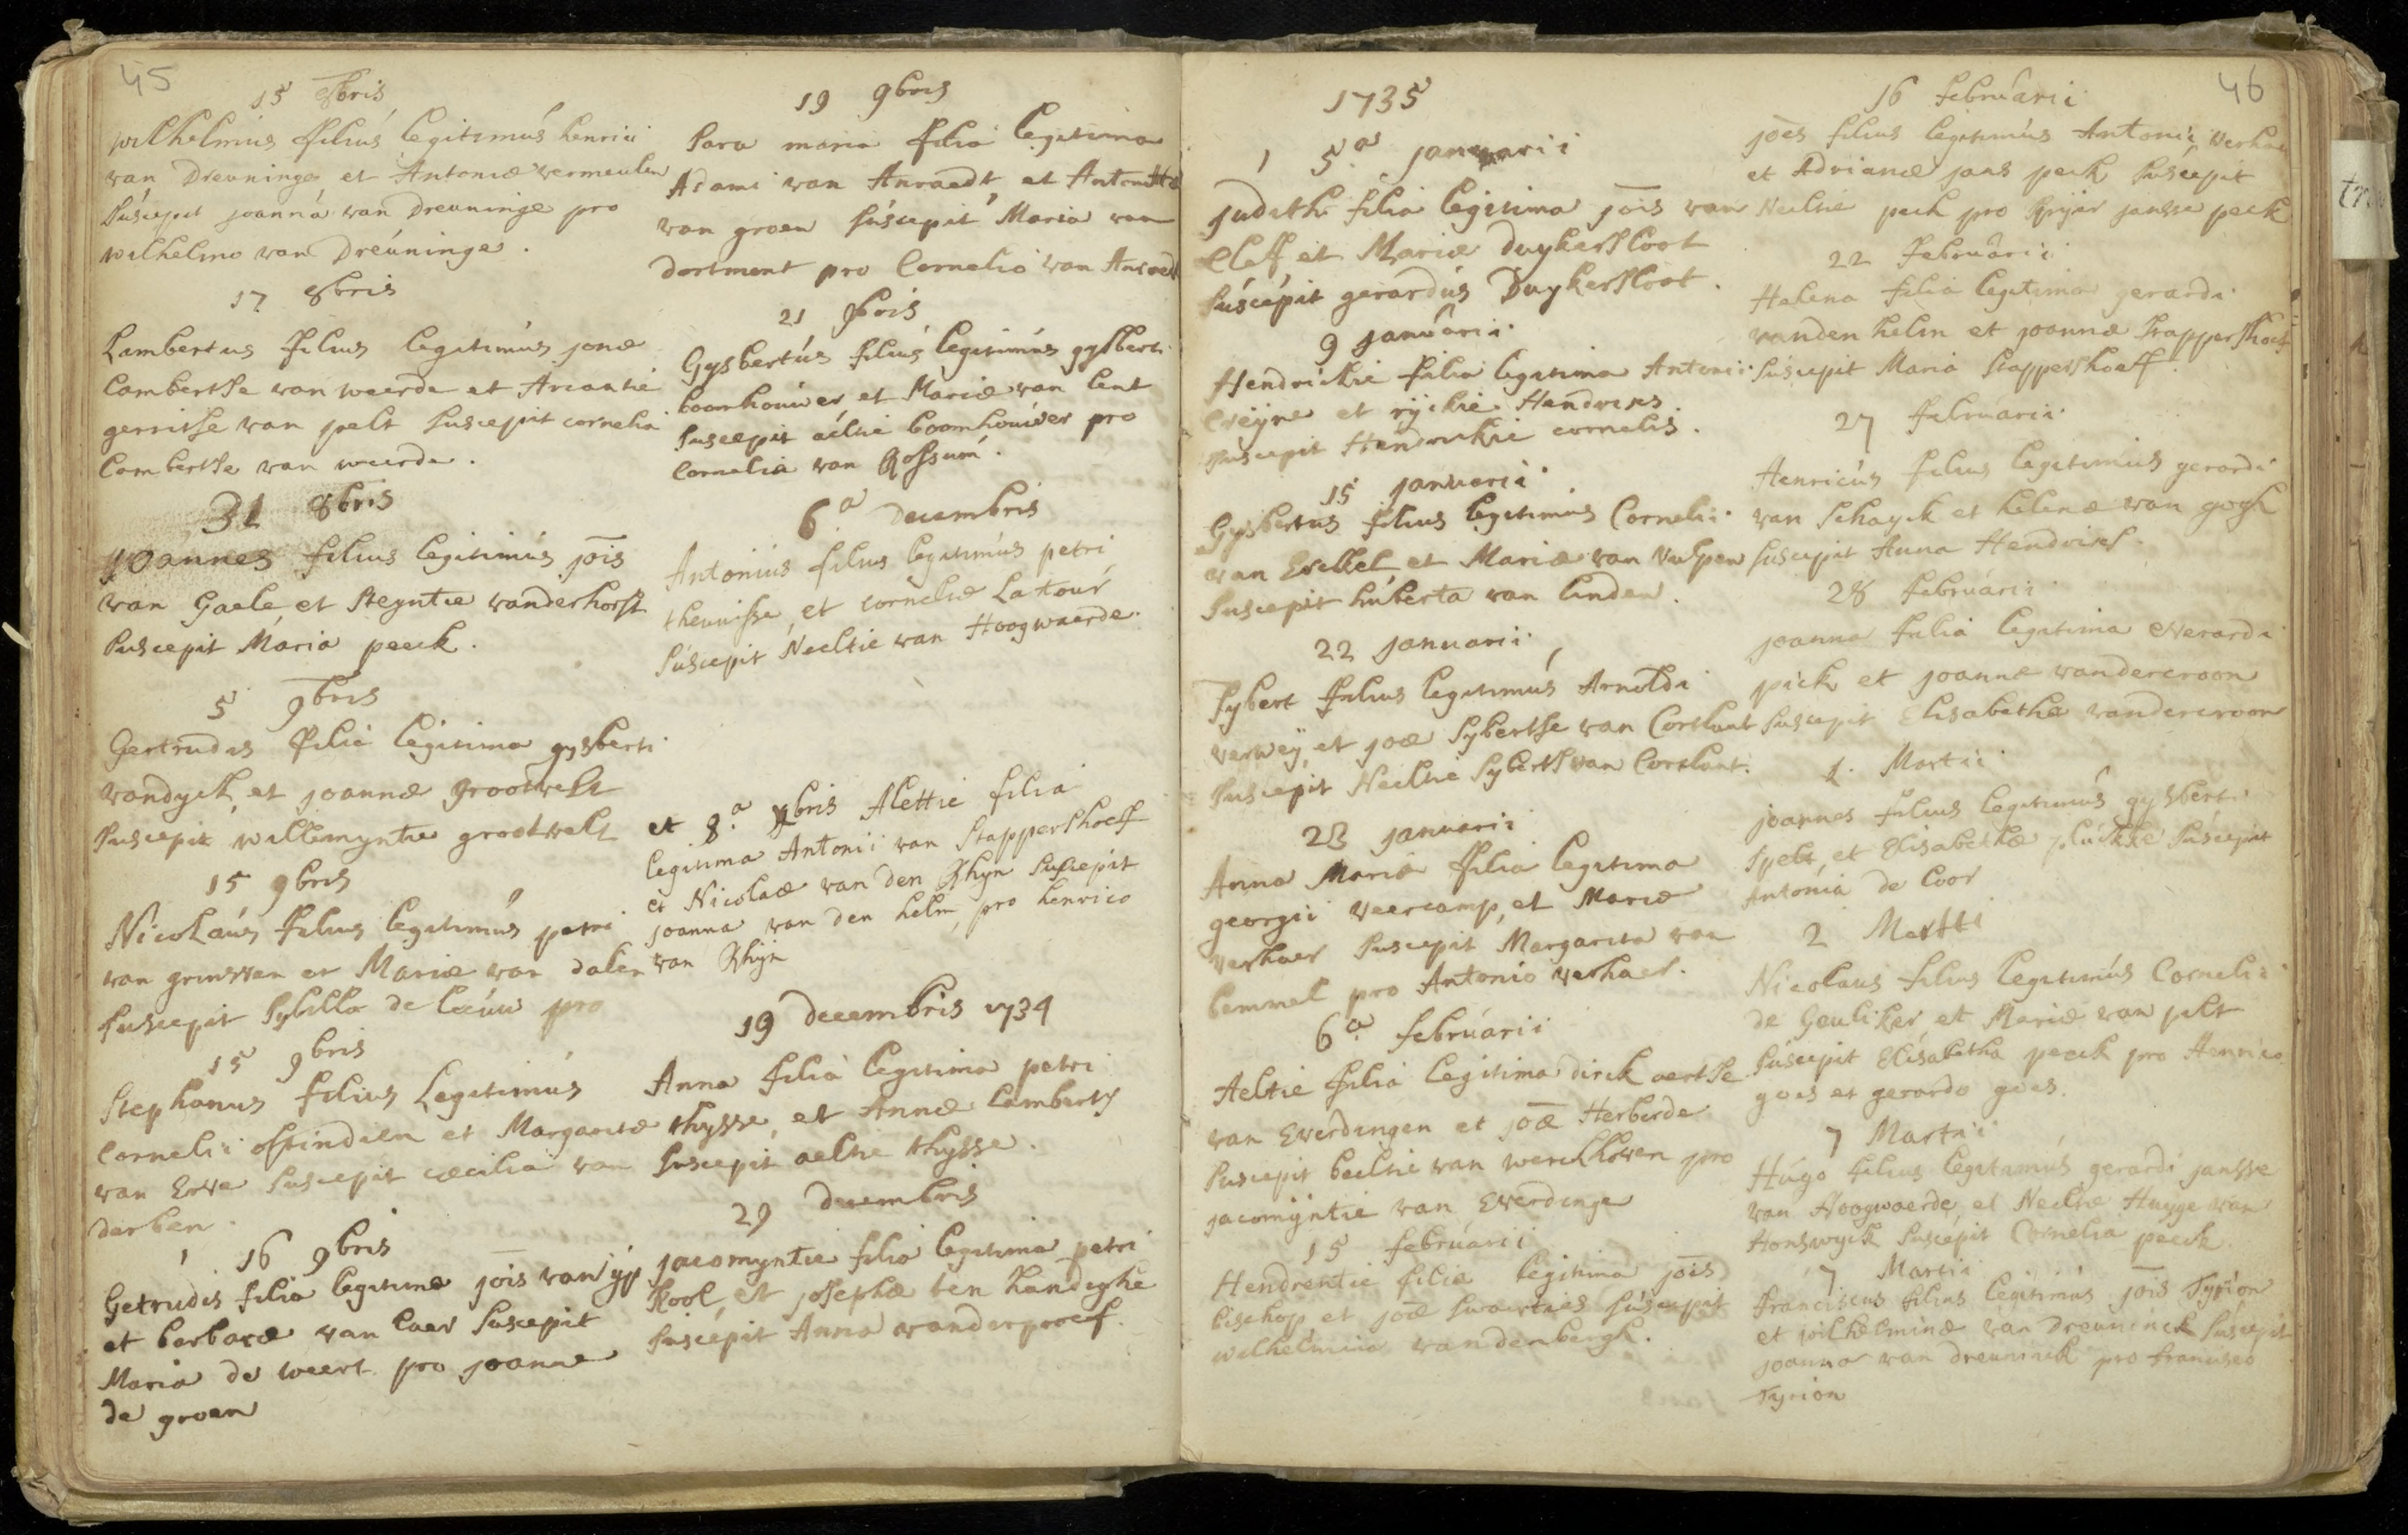 45
15 8bris
Wilhelmus filius legitimus henrici
van Dreuninge et Antoniæ vermeulen
suscepit joanna van Dreuninge pro
wilhelmo van Dreuninge.
17 8bris
Lambertus filius legitimus jonæ
lambertse van weerde et Ariantie
gerritse van pelt suscepit cornelia
lambertse van weerde.
31 8bris
joannes filius legitimus jois
van Gaele et Steyntie vanderhorst
suscepit Maria peeck.
5 9bris
Gertrudis filia legitima gysberti
vandyck, et joannæ grootvelt
suscepit willemyntie grootvelt
15 9bris
Nicolaus filius legitimus petri
van grinsven et Mariæ van dalen
suscepit Sybilla de leeuw pro
15 9bris
Stephanus filius Legitimus
Cornelii offindaen et Margaritæ
van Erve suscepit cæcilia van
derben.
16 9bris
Getrudis filia legitima jois van ijp
et barbaræ van laer suscepit
Maria de weert pro joanne
de groen
19 9bris
Sara maria filia legitima
Adami van Anraedt, et Antonettæ
van groen suscepit Maria van
dortment pro Cornelio van Anraedt
21 9bris
Gysbertus filius legitimus gysberti
boomhouwer et Mariæ van lent
suscepit aeltie boomhouwer pro
Cornelia van Rossum.
6a decembris
Antonius filius legitimus petri
theunisse, et corneliæ Latour
suscepit Neeltie van Hoogwaerde
et 8.a Xbris Alettie filia
legitima Antonii van Stappershoeff
et Nicolaæ van den Rhyn suscepit
joanna van den helm, pro henrico
van Rhijn
19 decembris 1734
Anna filia legitima petri
thysse, et Annæ lamberts
suscepit aeltie thysse.
29 decembris
jacomyntie filia legitima petri
kool, et josephæ ten handighe
suscepit Anna vanderproef.
46
1735
5.a januarii
judith filia legitima jois van
Cleff et Mariæ Duykersloot
suscepit gerardus Duykersloot.
9 januarii
Hendrickie filia legitima Antonii
Creijne et rijckie Hendricks
suscepit Hendrickie cornelis.
15 januarii
Gysbertus filius legitimus Cornelii
van Eeckel, et Mariæ van Vulpen
suscepit huberta van linden.
22 januarii
Sybert filius legitimus Arnoldi
verweij, et joæ Sybertse van Cortlant
suscepit Neeltie Syberts van Cortlant.
23 januarii
Anna Maria filia legitima
georgii veercamp, et Mariæ
verhaer suscepit Margarita van
bemmel pro Antonio verhaer.
6.a februarii
Aeltie filia legitima dirck aertse
van Everdingen et joæ Herberde
suscepit beeltie van werckhoven pro
jacomijntie van Everdinge
15 februarii
Hendrentie filia legitima jois
bischop et joæ swaertaes suscepit
wilhelmina vandenbergh.
16 februarii
joes filius legitimus Antonii verhaer
et Adrianæ jans peck suscepit
Neeltie peck pro Krijn jansse peck
22 februarii
Helena filia legitima gerardi
vanden helm et joannæ Stappershoef
suscepit Maria Stappershoeff.
27 februarii
Henricus filius legitimus gerardi
van Schayck et helenæ van gogh
suscepit Anna Hendricks.
28 februarii
joanna filia legitima everardi
pick et joannæ vandercroon
suscepit Elisabetha vandercroon
1. Martii
joannes filius legitimus gysberti
spelt, et Elisabethæ plückke suscepit
Antonia de Coor
2 Martii
Nicolaus filius legitimus Cornelii
de Geuliker, et Mariæ van pelt
suscepit Elisabetha peeck pro Henrico
goes et gerardo goes.
7 Martii
Hugo filius legitimus gerardi jansse
van Hoogwaerde, et Neeltiæ Huyge van
Honswyck suscepit Cornelia peeck
7 Martii
Franciscus filius legitimus jois Tyrion
et wilhelminæ van dreuninck suscepit
joanna van dreuninck pro francisco
Tyrion